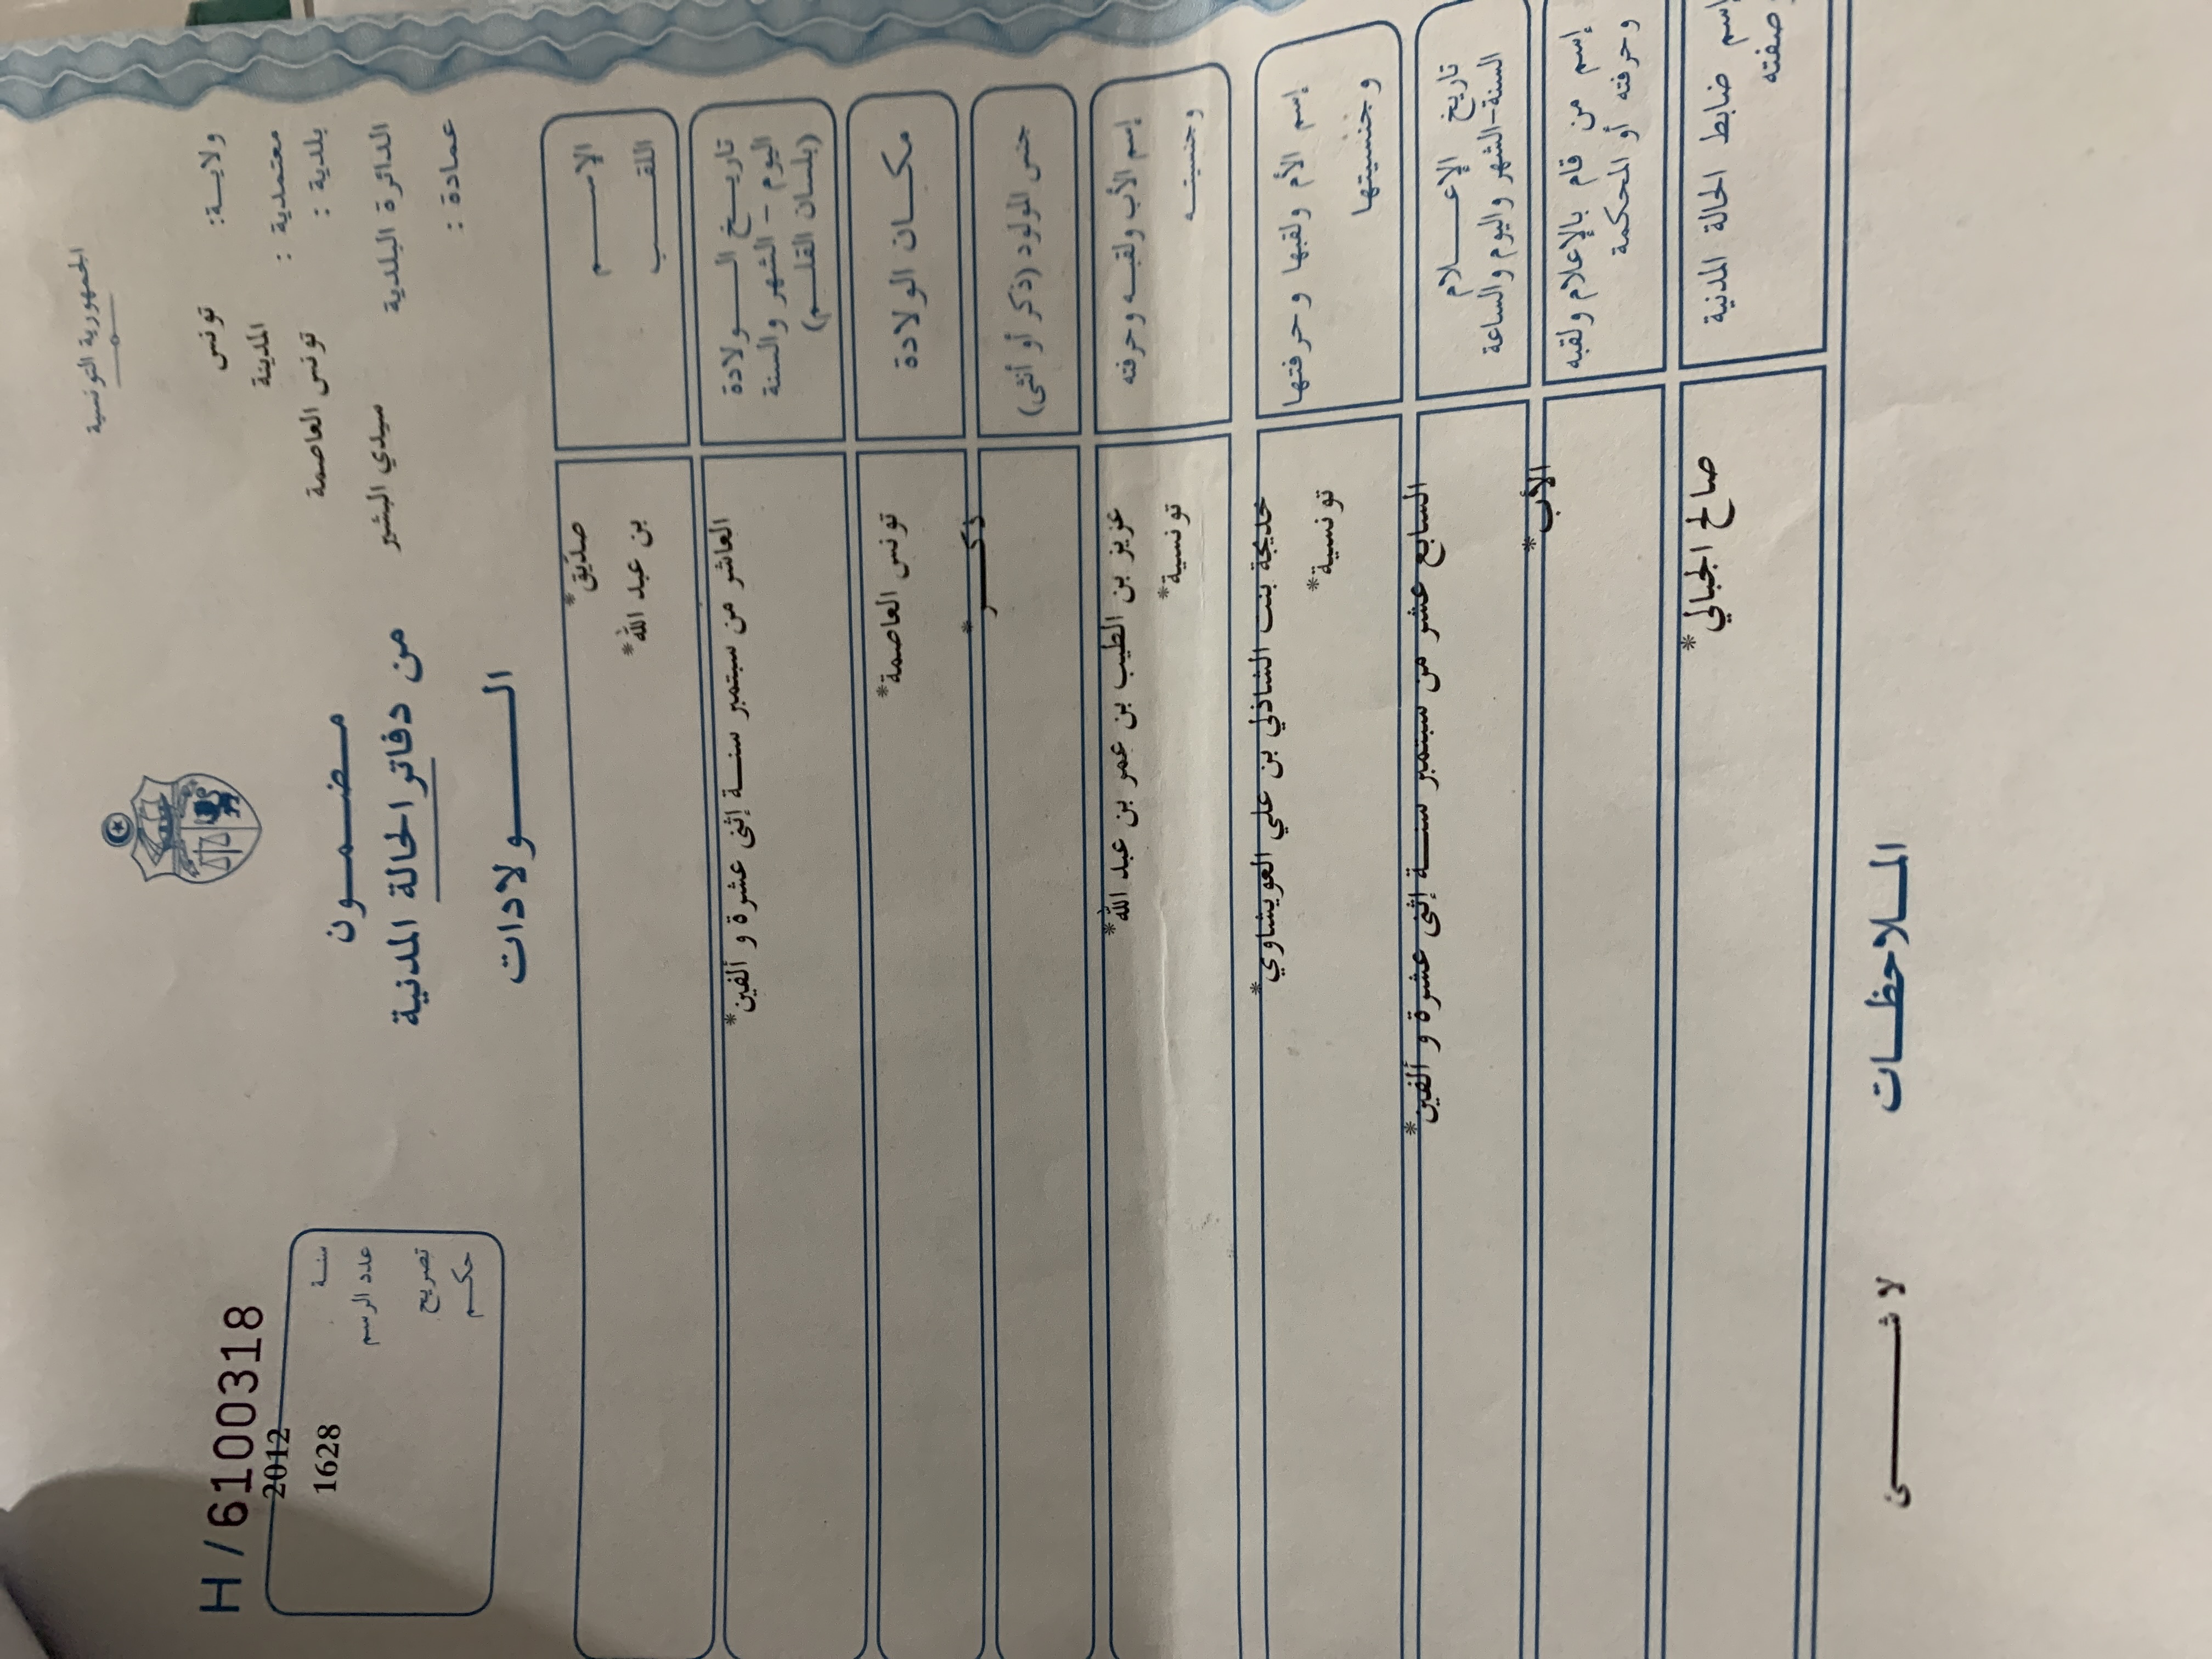 الجمهورية التونسية
H / 6100318
ولاية: تونس
معتمدية : المدينة
بلدية : تونس العاصمة
الدائرة البلدية سيدي البشير
عمادة :
مضمون
من دفاتر الحالة المدنية
الولادات
سنة 2012
عدد الرسم 1628
تصريح
حكم
الإسم صديق*
اللقب بن عبد الله*
تاريخ الولادة العاشر من سبتمبر سنة إثنى عشرة و ألفين*
اليوم - الشهر والسنة
(بلسان القلم)
مكان الولادة تونس العاصمة*
جنس المولود (ذكر أو أنثى) ذكر*
إسم الأب ولقبه وحرفته عزيز بن الطيب بن عمر بن عبد الله*
وجنسيته تونسية*
إسم الأم ولقبها وحرفتها خديجة بنت الشاذلي بن علي العويشاوي*
وجنسيتها تونسية*
تاريخ الإعلام السابع عشر من سبتمبر سنة إثنى عشرة و ألفين*
السنة-الشهر واليوم والساعة
إسم من قام بالإعلام ولقبه الأب*
وحرفته أو المحكمة
إسم ضابط الحالة المدنية صالح الجبالي*
وصفته
الملاحظات
لا شئ